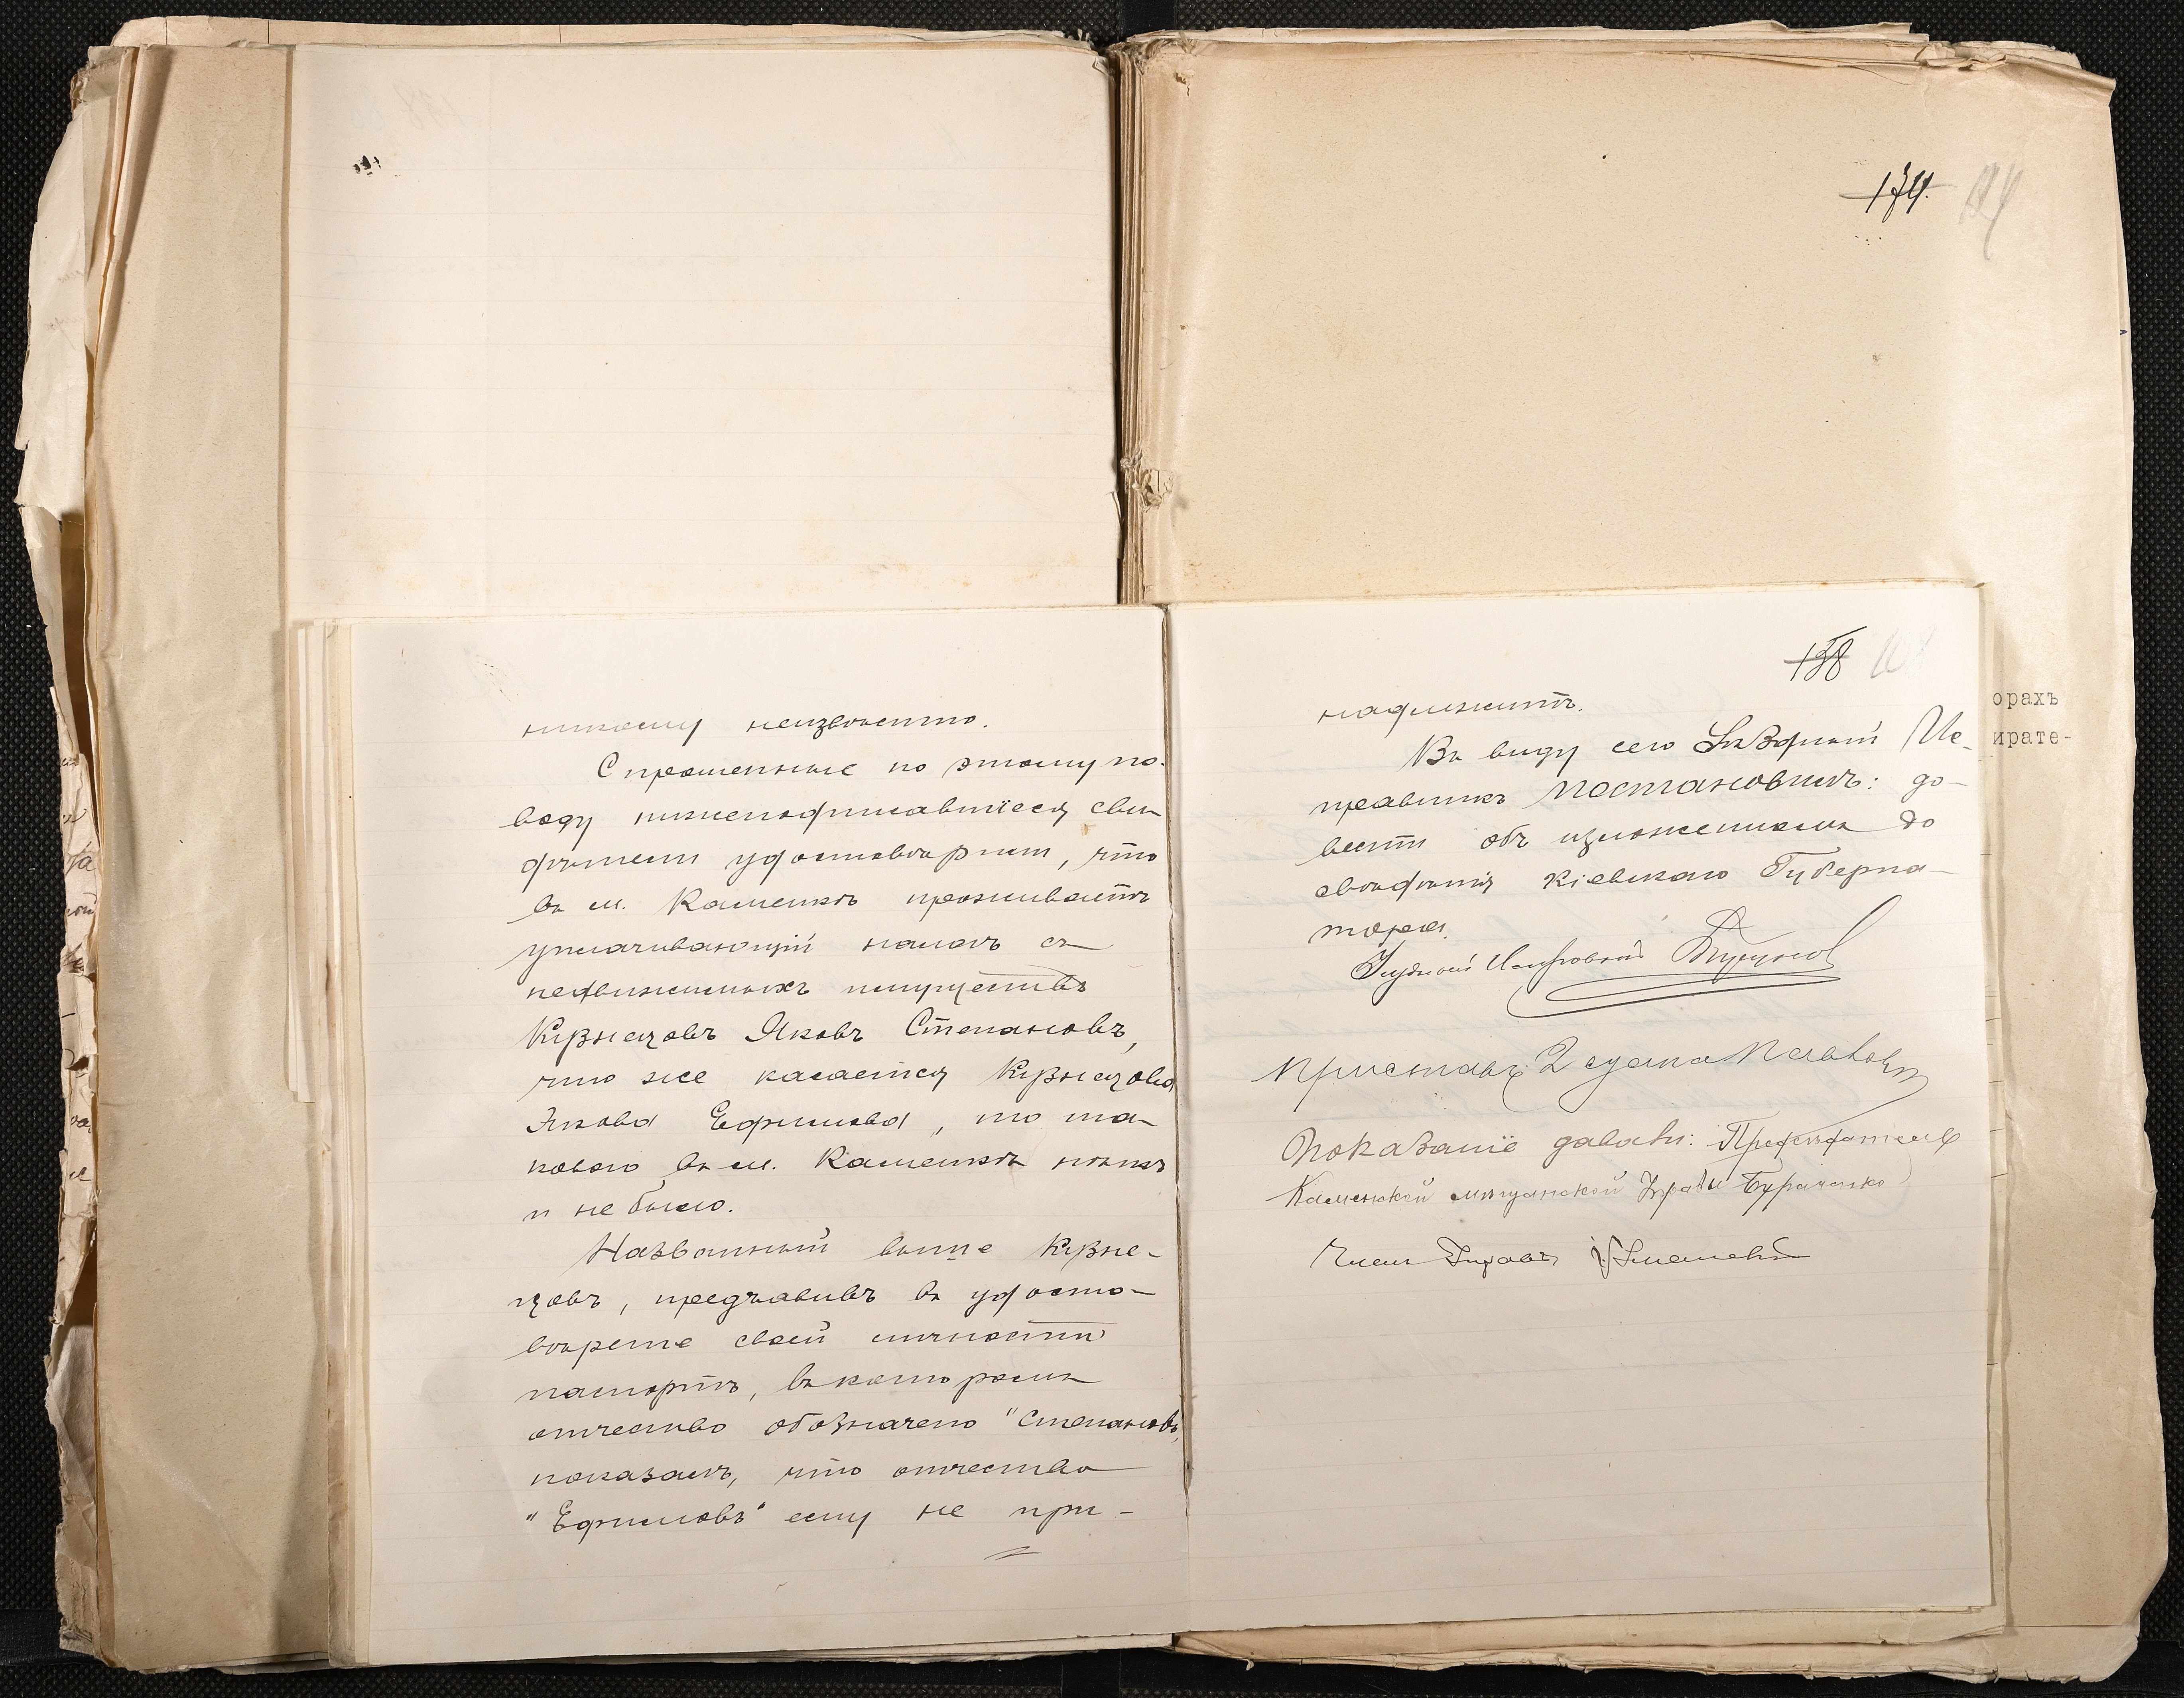 никому неизвѣстно.
Спрошенные по этому по-
воду нижеподписавшіеся сви-
дѣтели удостовѣрили, что
въ м. Каменкѣ проживаетъ
уплачивающій налогъ съ
недвижимыхъ имуществъ
Кузнецовъ Яковъ Степановъ,
что же касается Кузнецова
Якова Ефимова, то та-
кового въ м. Каменкѣ нѣтъ
и не было.
Названный выше Кузне-
цовъ, предъявивъ въ удосто-
вѣрене своей личности
паспортъ, въ которомъ
отчество обозначено "Степановъ,
показалъ, что отчество
"Ефимовъ" ему не при-
174.
138
надлежитъ.
Въ виду сего Уѣздный Ис-
правникъ постановилъ: до-
вести объ изложенномъ до
свѣдѣнія Кіевскаго Губерна-
тора.
Уѣздный Исправникъ
Приставъ 2 стана
Показаніе давали: Предсѣдатель
Каменской мѣщанской Управы Бураченко
Членъ Управы
орахъ
ирате-